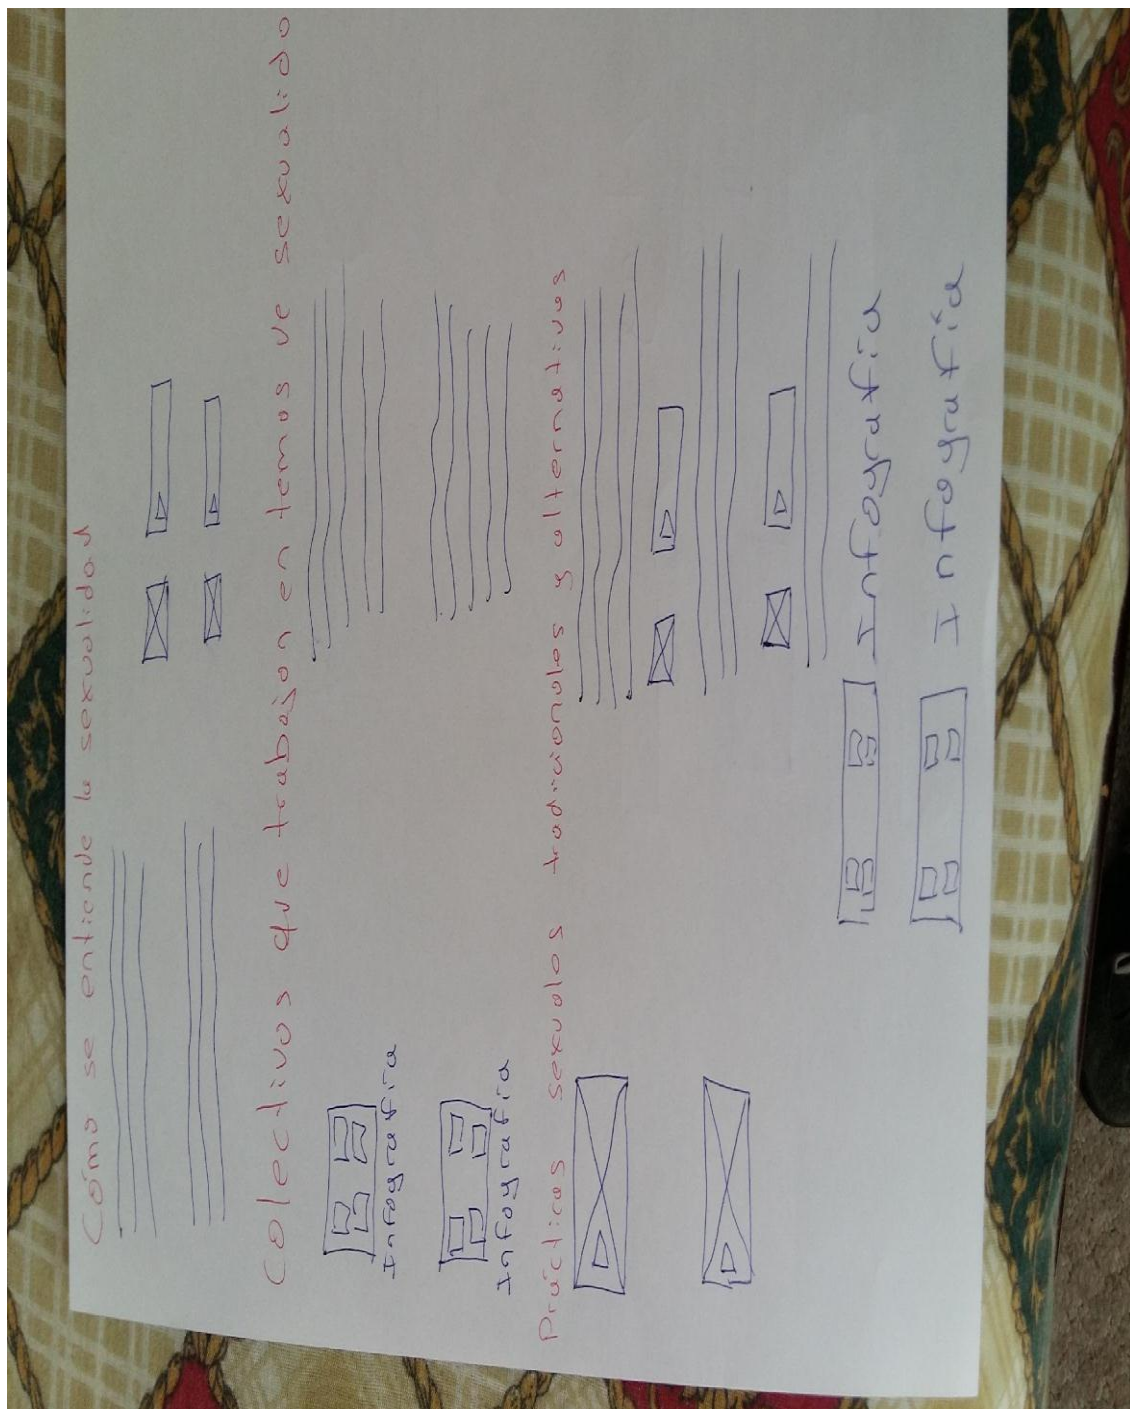 Cómo se entiende la sexualidad
Colectivos que trabajan en temas de sexualidad
Infografía
Infografía
Prácticas sexuales tradicionales y alternativas
Infografía
Infografía